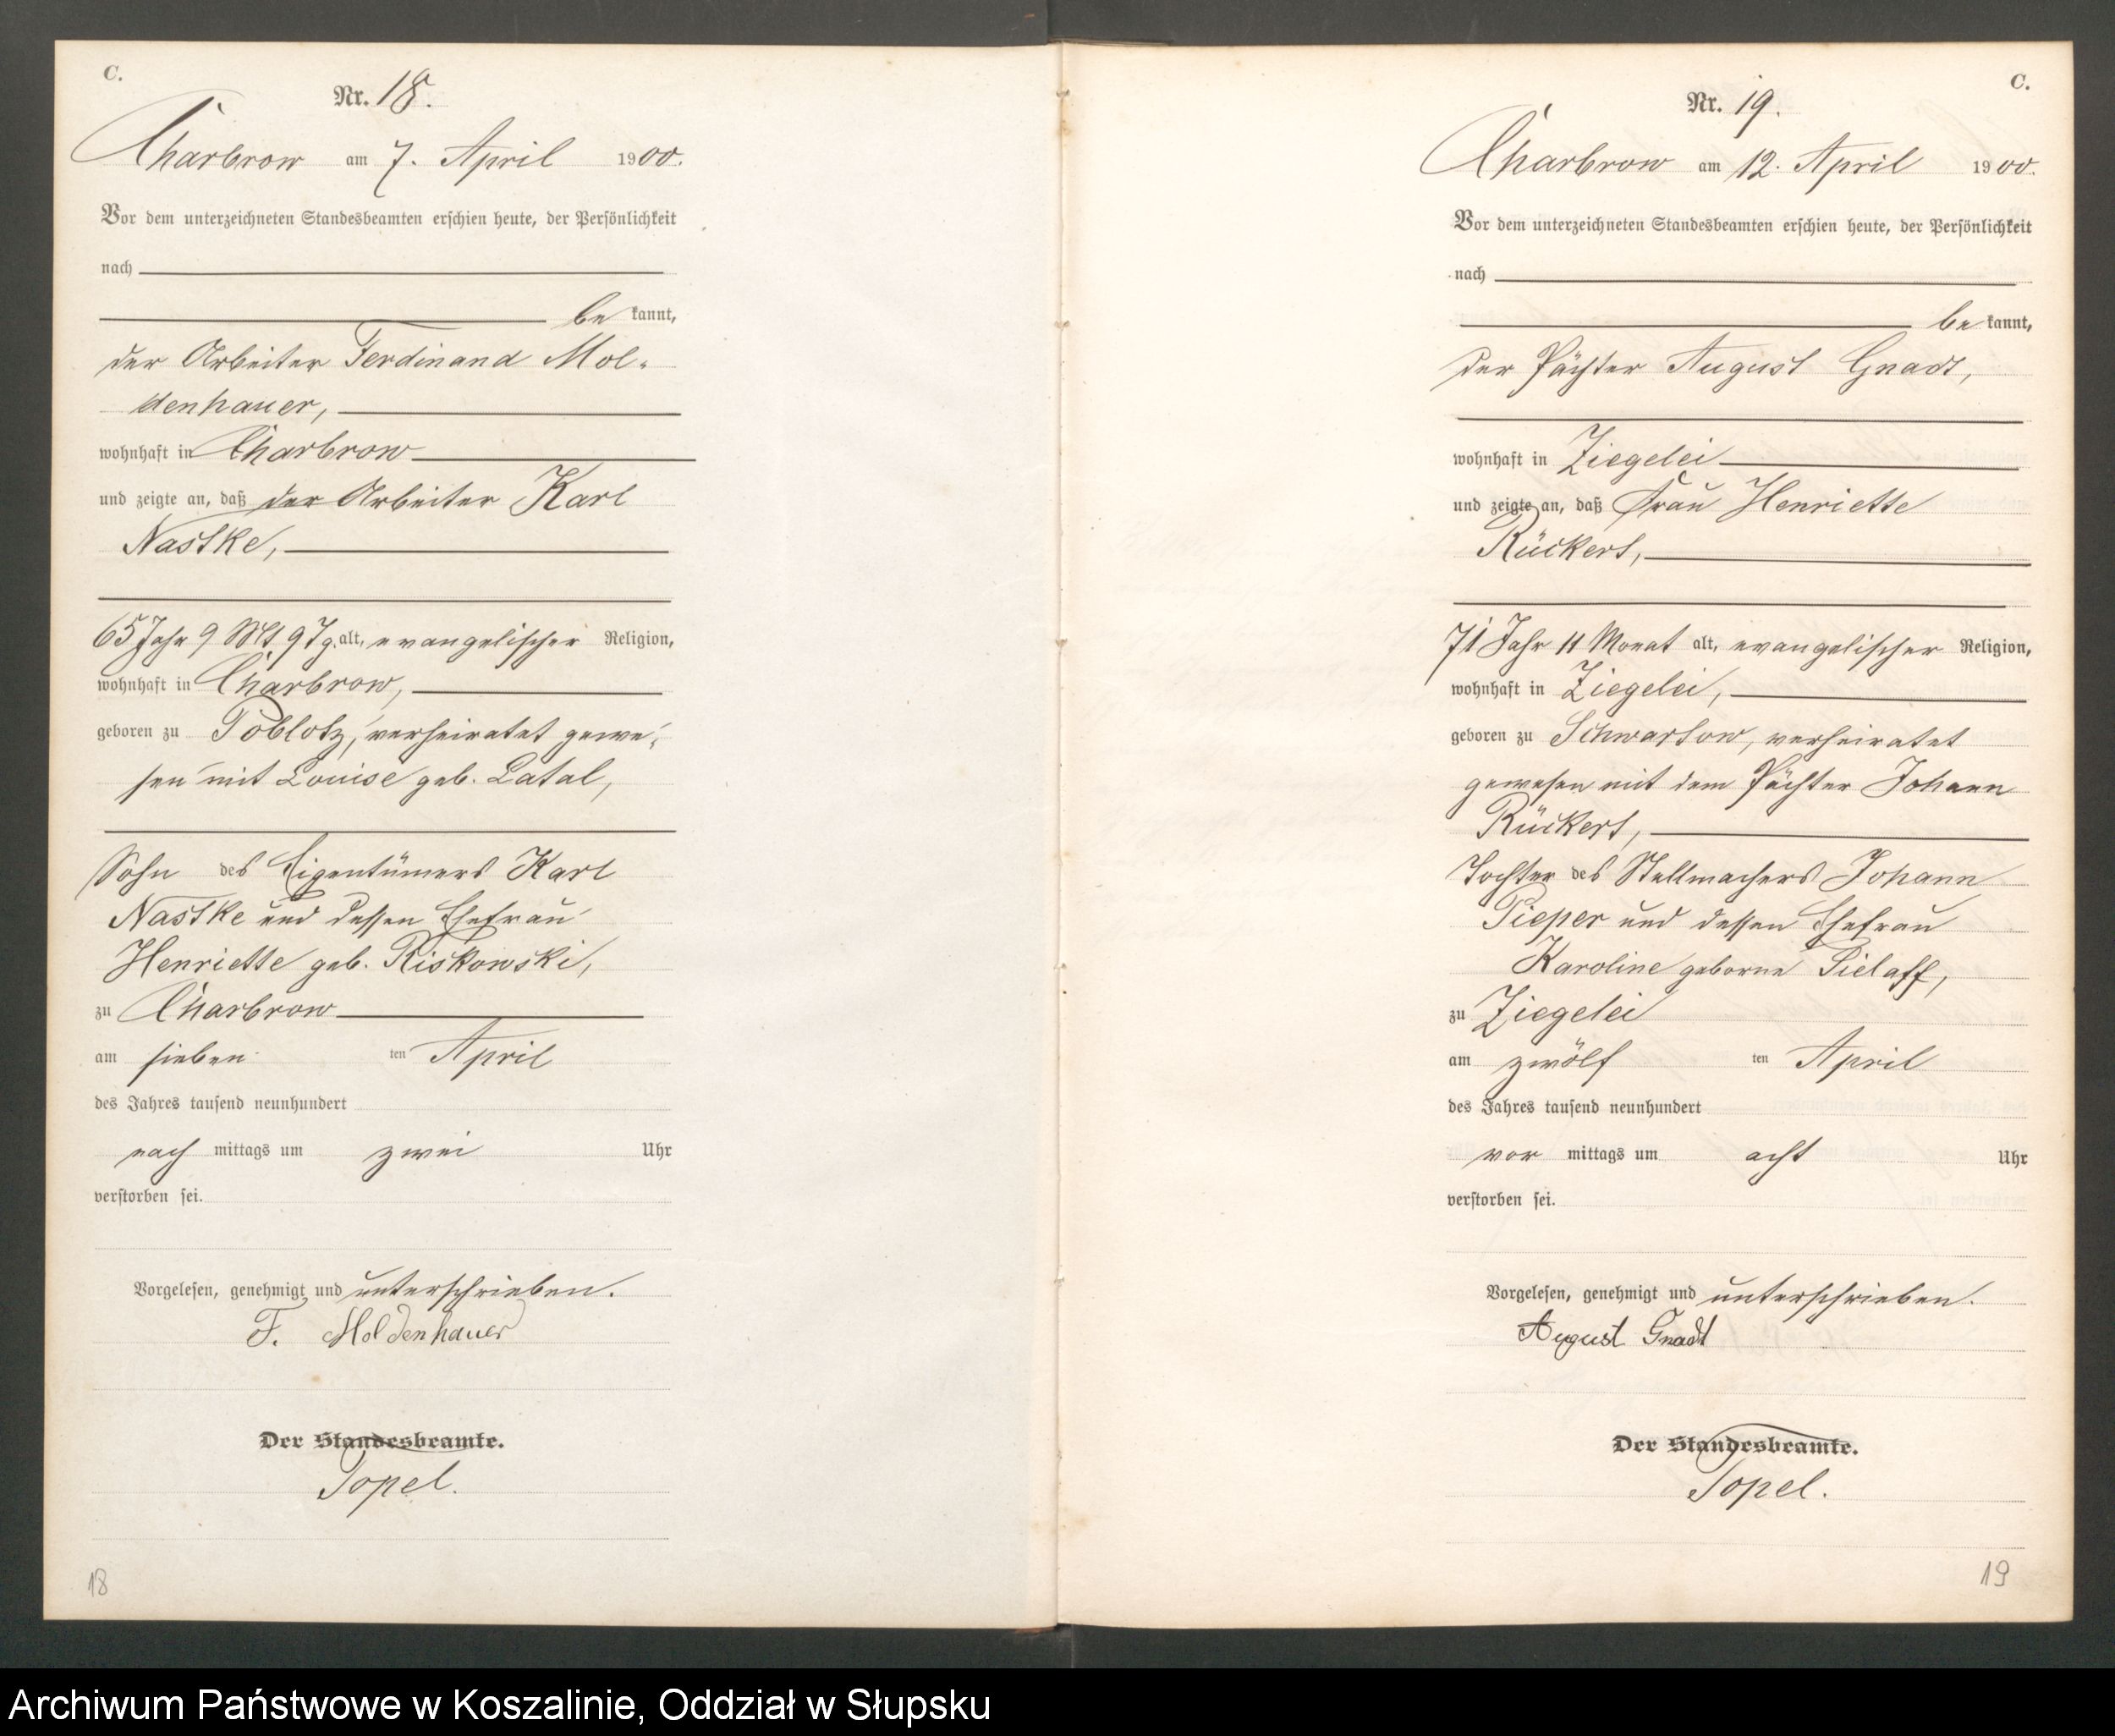 C.
Nr. 18.
Charbrow am 7. April 1900.
Vor dem unterzeichneten Standesbeamten erschien heute, der Persönlichkeit
nach
be kannt,
der Arbeiter Ferdinand Mol-
denhauer,
wohnhaft in Charbrow
und zeigte an, daß der Arbeiter Karl
Nastke,
65 Jahr 9 Mt. 9 Tg. alt, evangelischer Religion,
wohnhaft in Charbrow,
geboren zu Poblotz, verheiratet gewe-
sen mit Louise geb. Latal,
Sohn des Eigentümers Karl
Nastke und dessen Ehefrau
Henriette geb. Riskowski,
zu Charbrow
am sieben ten April
des Jahres tausend neunhundert
nach mittags um zwei Uhr
verstorben sei.
Vorgelesen, genehmigt und unterschrieben.
F. Moldenhauer
Der Standesbeamte.
Topel.
18
C.
Nr. 19.
Charbrow am 12. April 1900.
Vor dem unterzeichneten Standesbeamten erschien heute, der Persönlichkeit
nach
be kannt,
der Pächter August Gnadt,
wohnhaft in Ziegelei
und zeigte an, daß Frau Henriette
Rückert,
71 Jahr 11 Monat alt, evangelischer Religion,
wohnhaft in Ziegelei,
geboren zu Schwartow, verheiratet
gewesen mit dem Pächter Johann
Rückert,
Tochter des Stellmachers Johann
Pieper und dessen Ehefrau
Karoline geborne Pielaff,
zu Ziegelei
am zwölf ten April
des Jahres tausend neunhundert
vor mittags um acht Uhr
verstorben sei.
Vorgelesen, genehmigt und unterschrieben.
August Gnadt
Der Standesbeamte.
Topel.
19
Archiwum Państwowe w Koszalinie, Oddział w Słupsku